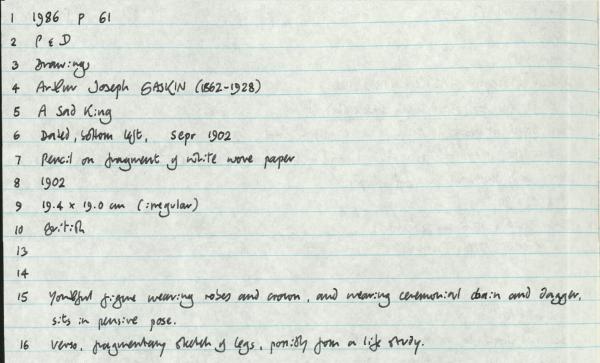 1 1986 P 61
2 P & D
3 Drawings
4 Arthur Joseph GASKIN (1862-1928)
5 A Sad King
6 Dated, bottom left, Sept 1902
7 Pencil on fragment of white wove paper
8 1902
9 19.4 x 19.0 cm (irregular)
10 British
13
14
15 Youthful figure wearing robes and crown, and wearing ceremonial chain and dagger,
sits in pensive pose.
16 Verso, fragmentary sketch of legs, possibly from a life study.